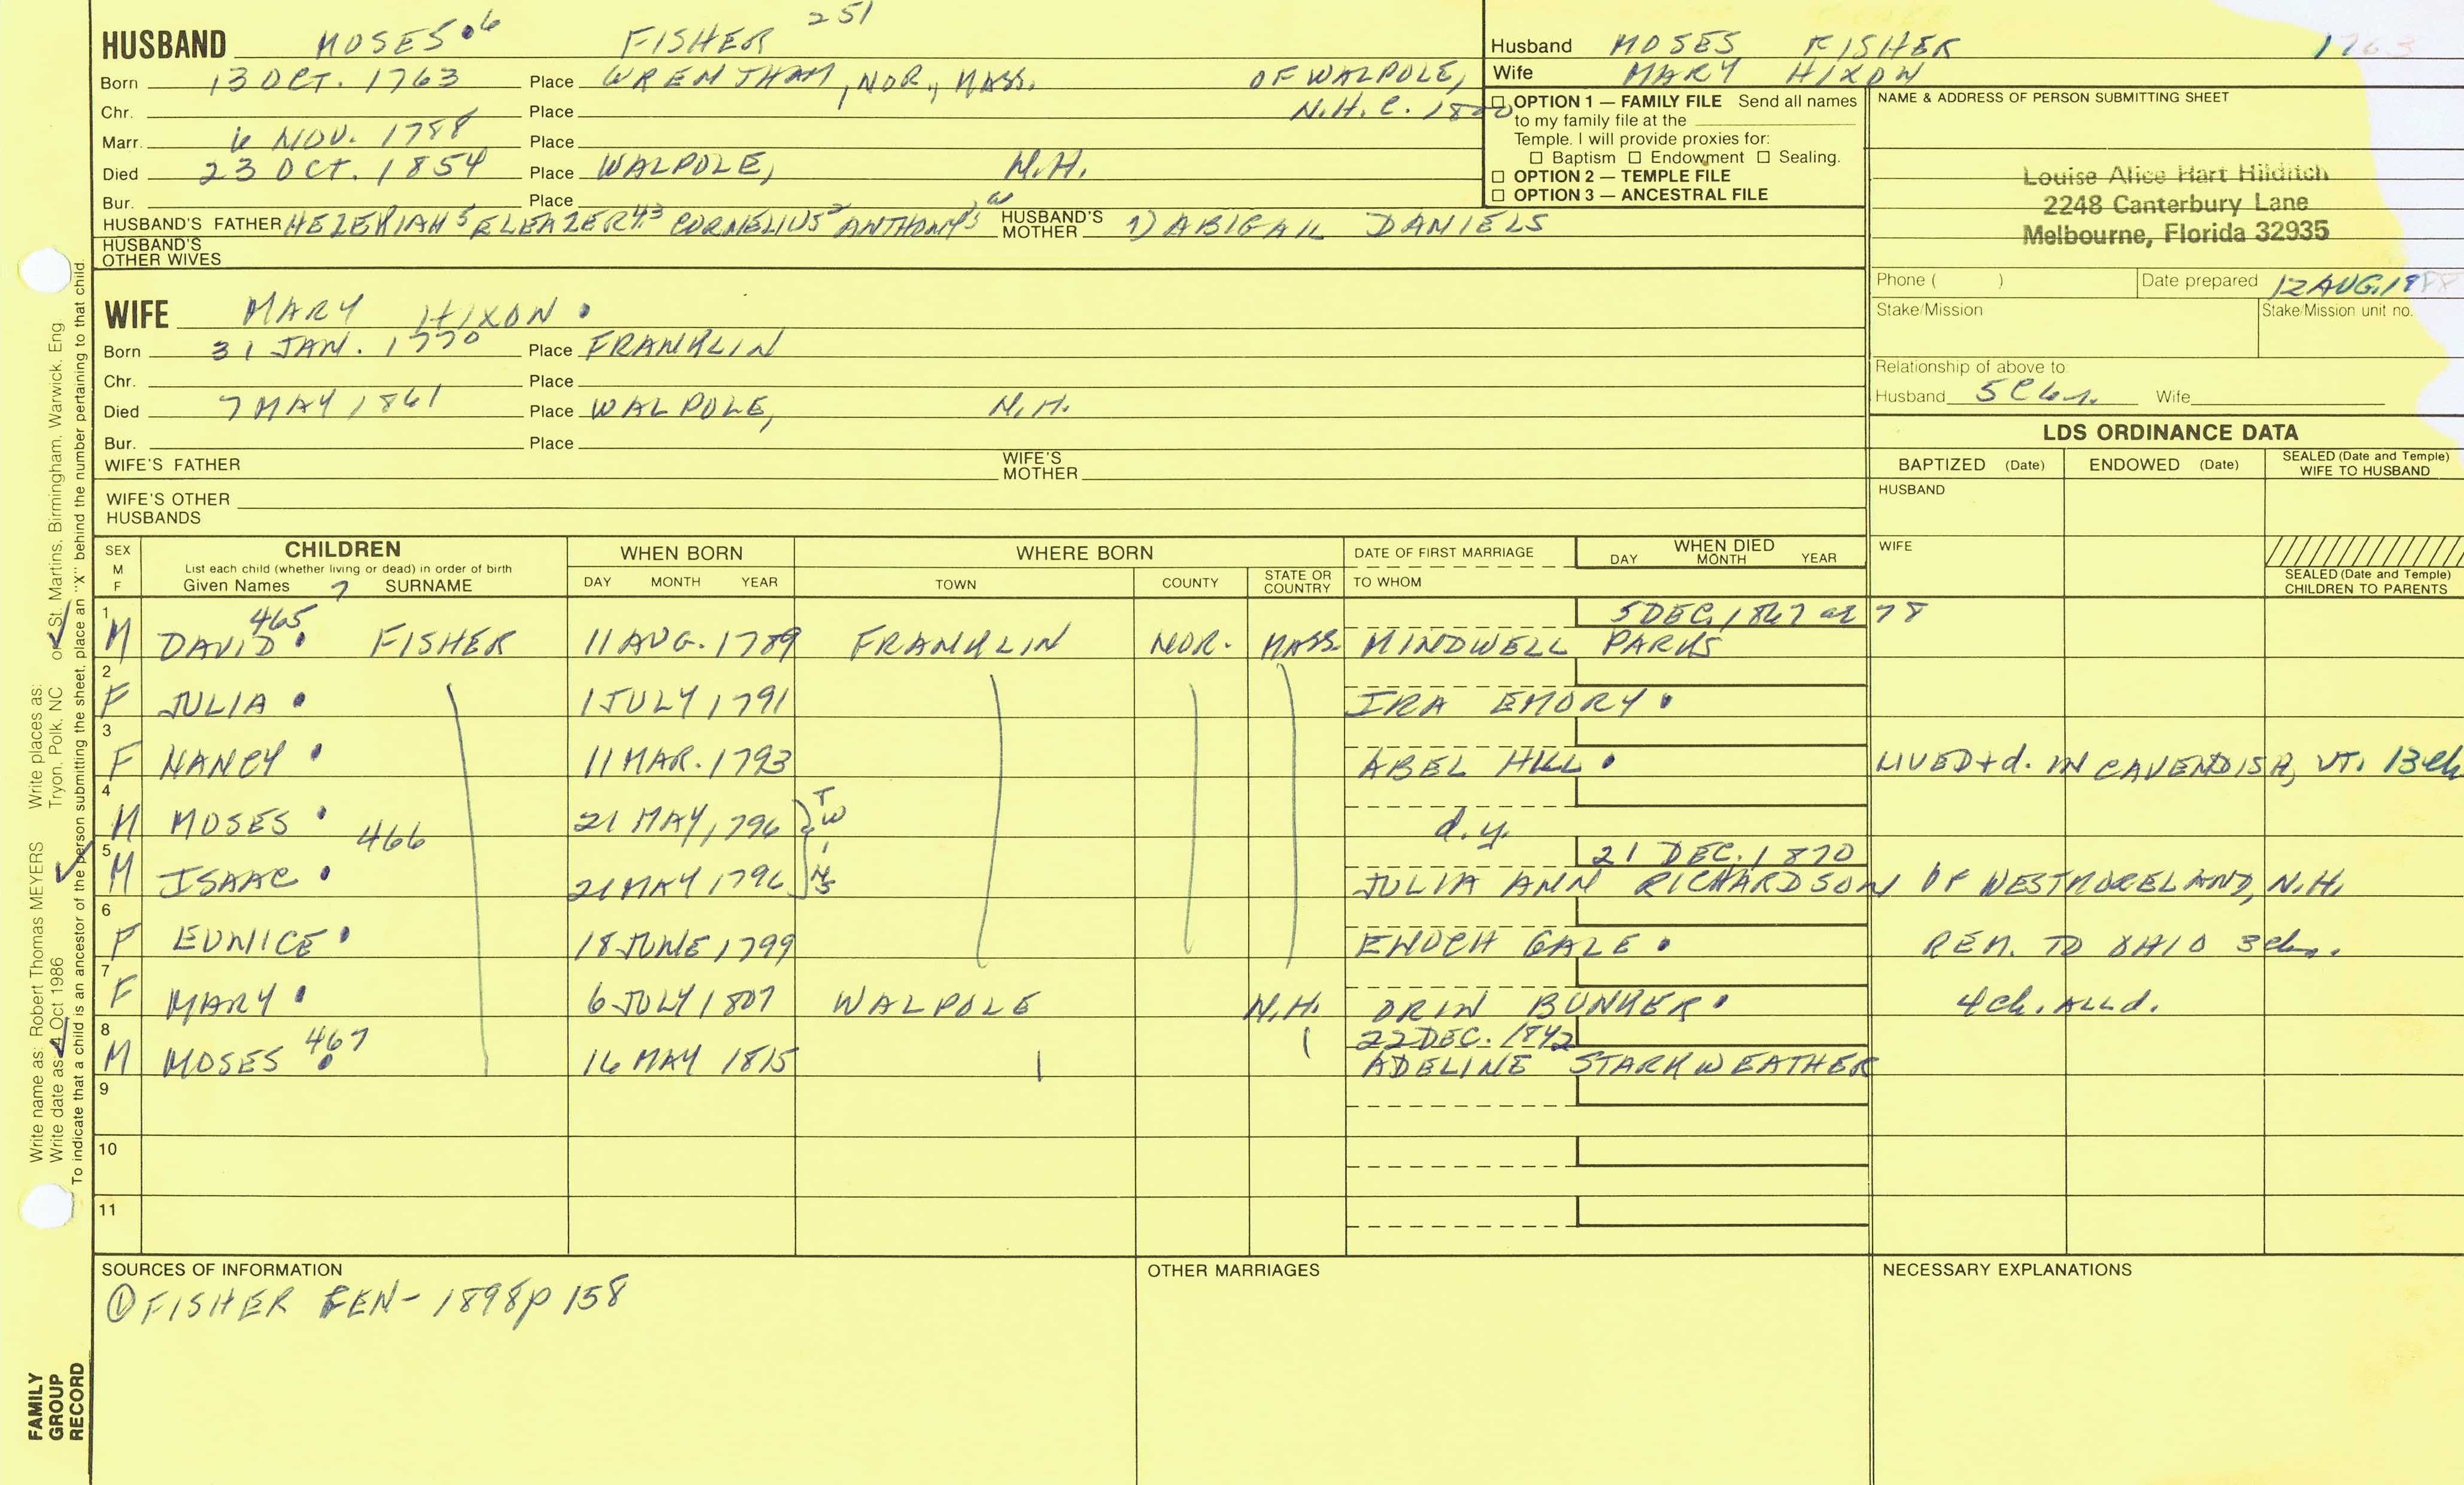 251
HUSBAND MOSES 6 FISHER
Born 13 OCT. 1763 Place WRENTHAM, NOR., MASS. OF WALPOLE,
Chr. Place N.H. C. 1800
Marr. 6 NOV. 1788 Place
Died 23 OCT. 1854 Place WALPOLE, N.H.
Bur. Place
HUSBAND'S FATHER HEZEKIAH 5 ELEAZER 4,3 CORNELIUS 2 ANTHONY HUSBAND'S MOTHER 1) ABIGAIL DANIELS
HUSBAND'S OTHER WIVES
WIFE MARY HIXON
Born 31 JAN. 1770 Place FRANKLIN
Chr. Place
Died 7 MAY 1861 Place WALPOLE, N.H.
Bur. Place
WIFE'S FATHER WIFE'S MOTHER
WIFE'S OTHER HUSBANDS
Husband MOSES FISHER 1763
Wife MARY HIXON
☐ OPTION 1 — FAMILY FILE Send all names
to my family file at the
Temple. I will provide proxies for:
☐ Baptism ☐ Endowment ☐ Sealing.
☐ OPTION 2 — TEMPLE FILE
☐ OPTION 3 — ANCESTRAL FILE
NAME & ADDRESS OF PERSON SUBMITTING SHEET
Louise Alice Hart Hilditch
2248 Canterbury Lane
Melbourne, Florida 32935
Phone ( ) Date prepared 12 AUG. 1988
Stake/Mission Stake/Mission unit no.
Relationship of above to:
Husband Wife
LDS ORDINANCE DATA
BAPTIZED (Date) ENDOWED (Date) SEALED (Date and Temple) WIFE TO HUSBAND
HUSBAND
WIFE
SEALED (Date and Temple) CHILDREN TO PARENTS
SEX M F CHILDREN WHEN BORN WHERE BORN DATE OF FIRST MARRIAGE WHEN DIED
List each child (whether living or dead) in order of birth
Given Names 7 SURNAME DAY MONTH YEAR TOWN COUNTY STATE OR COUNTRY TO WHOM DAY MONTH YEAR
1 465 5 DEC. 1867 ae 78
M DAVID FISHER 11 AUG. 1789 FRANKLIN NOR. MASS. MINDWELL PARKS
2
F JULIA 1 JULY 1791 IRA EMORY
3
F NANCY 11 MAR. 1793 ABEL HILL LIVED + d. IN CAVENDISH, VT. 13 ch
4
M MOSES 21 MAY 1796 TWINS d.y.
5 466 21 DEC. 1870
M ISAAC 21 MAY 1796 JULIA ANN RICHARDSON OF WESTMORELAND, N.H.
6
F EUNICE 18 JUNE 1799 ENOCH GALE REM. TO OHIO 3 ch.
7
F MARY 6 JULY 1807 WALPOLE N.H. ORIN BUNKER 4 ch. ALL d.
8 467 22 DEC. 1842
M MOSES 16 MAY 1815 ADELINE STARKWEATHER
9
10
11
SOURCES OF INFORMATION
① FISHER GEN- 1898 p 158
OTHER MARRIAGES
NECESSARY EXPLANATIONS
Write name as: Robert Thomas MEYERS Write places as: Tryon, Polk, NC
Write date as: 4 Oct 1986 or St. Martins, Birmingham, Warwick, Eng
To indicate that a child is an ancestor of the person submitting the sheet, place an "X" behind the number pertaining to that child.
FAMILY
GROUP
RECORD